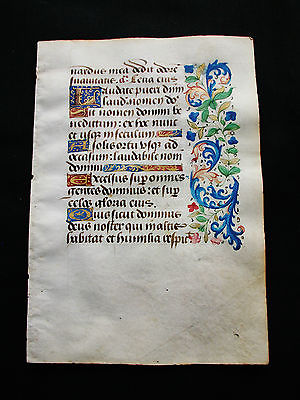 nardus mea dedit odorē
suavitatis. a. Leva eius
Laudate pueri dñm
laud. nomen do
Sit nomen domini be
nedictum: ex hoc nunc
et usq3 in seculum
A solis ortu usq3 ad
occasum: laudabile nomen
domini
Excelsus sup omnes
gentes dominus: et sup
celos gloria eius.
Quis sicut dominus
deus noster qui in altis
habitat et humilia respic